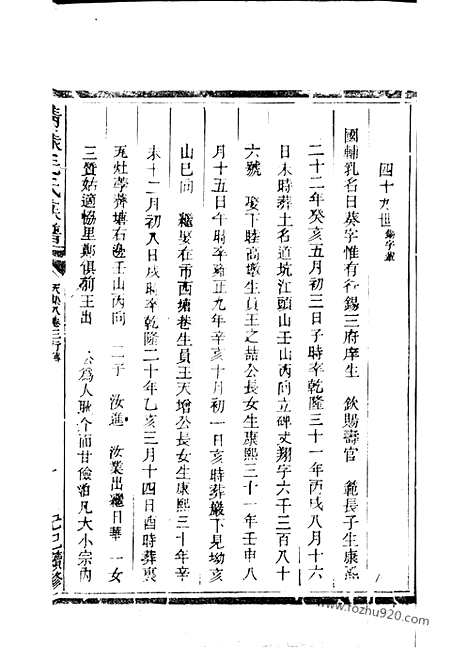 四十九世 集字輩
國輔乳名日葵字惟有行錫三府庠生 欽賜壽官 範長子生康熙
二十二年癸亥五月初三日子時卒乾隆三十一年丙戌八月十六
日未時葬土名道坑江頭山壬山丙向立碑丈翔字六千三百八十
六號 娶下睦高墩生員王之喆公長女生康熙三十一年壬申八
月十五日午時卒雍正九年辛亥十月初一日亥時葬嚴下見坳亥
山巳向 繼娶在市西塘巷生員王天增公長女生康熙三十年辛
未十二月初八日戌時卒乾隆二十年乙亥三月十四日酉時葬裏
瓦灶學莾塘右邊壬山丙向 二子 汝進 汝業出繼日華 一女
三贊姑適愓里鄭俱前王出 公為人耿介而甘儉泊凡大小宗內
毛氏族譜
己巳續修
www.fozhu920.com